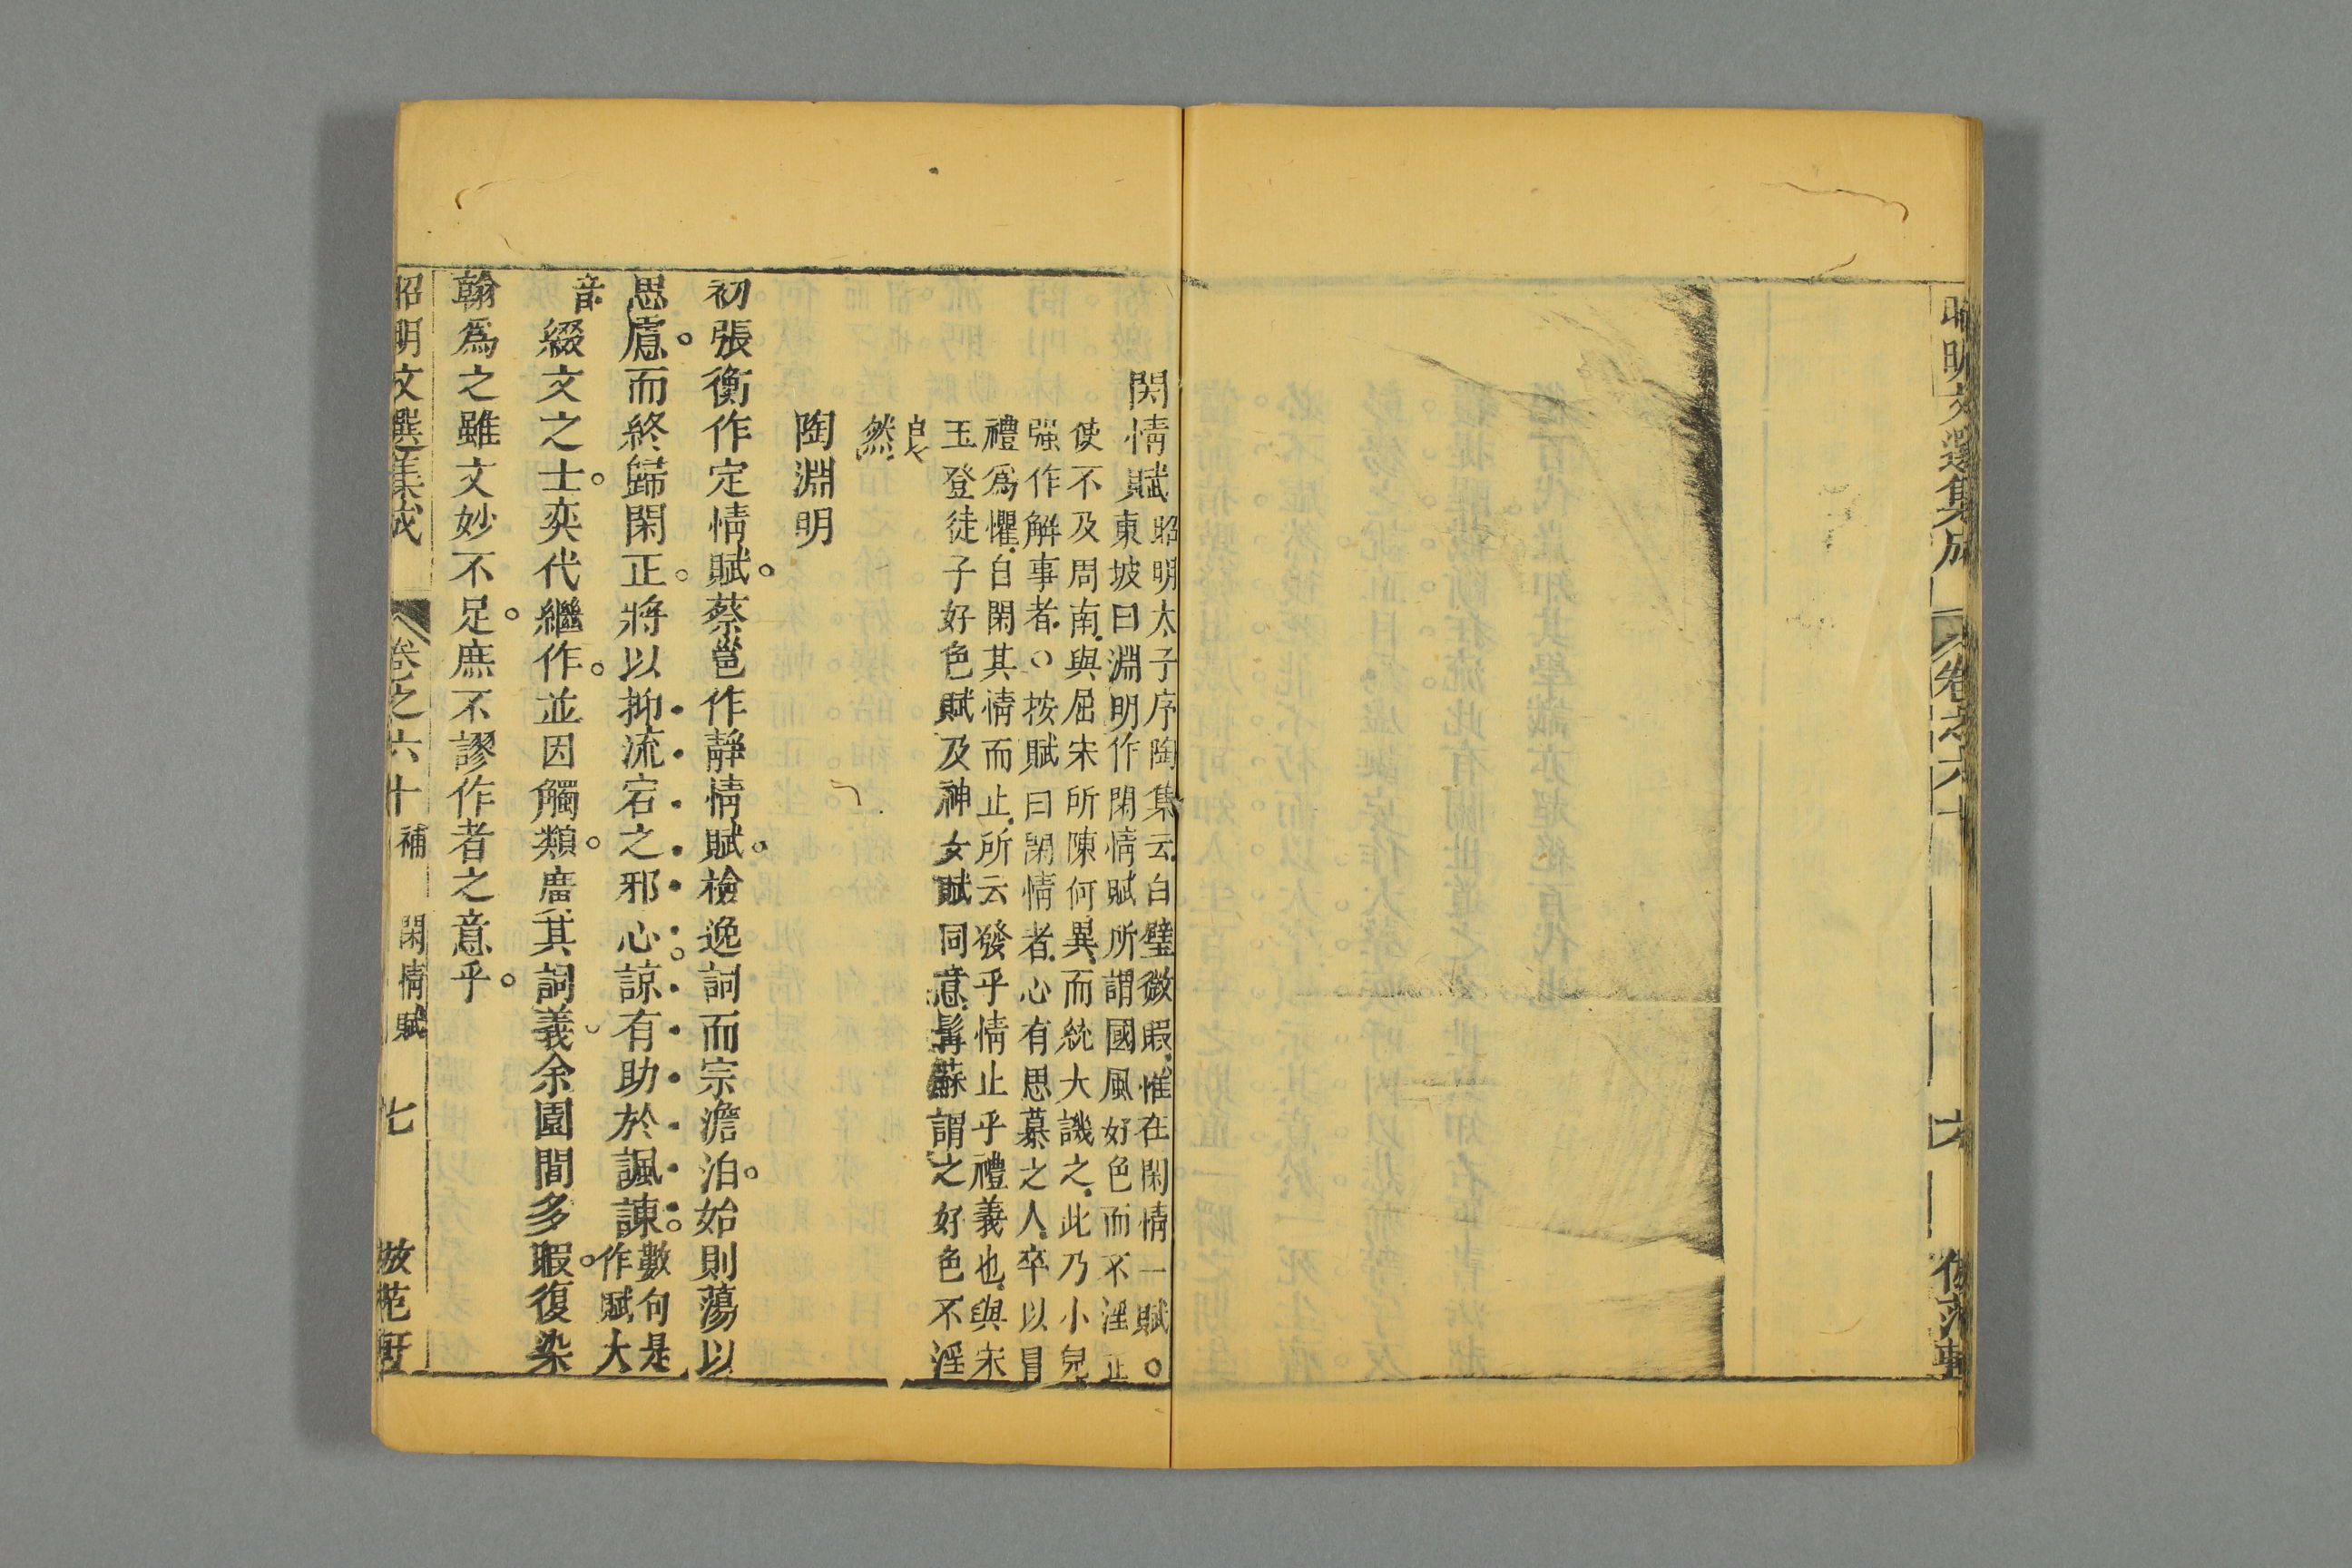 昭明文選集成 卷之六十 六 倣范軒
閑情賦
昭明太子序陶集云白璧微瑕惟在閑情一賦○
東坡曰淵明作閑情賦所謂國風好色而不淫正
使不及周南與屈宋所陳何異而統大譏之此乃小兒
强作解事者○按賦曰閑情者心有思慕之人卒以冒
禮爲懼自閑其情而止所云發乎情止乎禮義也與宋
玉登徒子好色賦及神女賦同意髯蘇謂之好色不淫
良
然
陶淵明
初張衡作定情賦蔡邕作靜情賦檢逸詞而宗澹泊始則蕩以
思慮而終歸閑正將以抑流宕之邪心諒有助於諷諫
數句是
作賦大
音
綴文之士奕代繼作並因觸類廣其詞義余園間多暇復染
翰爲之雖文妙不足庶不謬作者之意乎
昭明文選集成 卷之六十 補 閑情賦 七 倣范軒